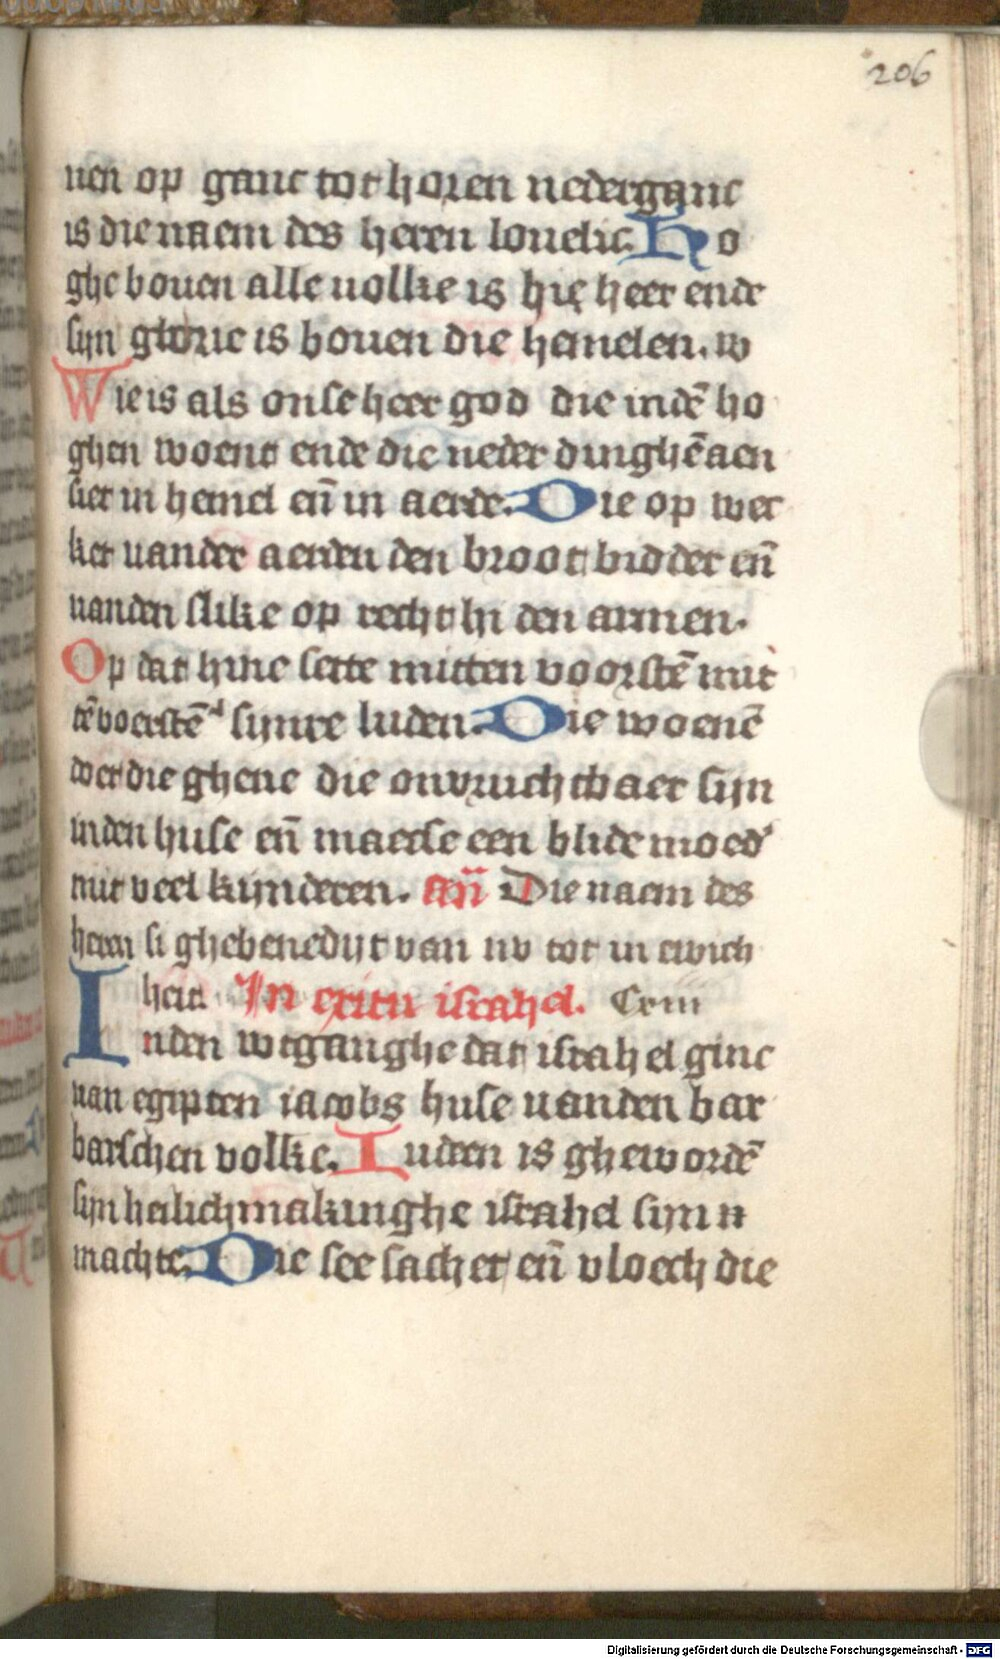 206
uen op ganc tot horen nederganc
is die naem des heren louelic. Ho
ghe bouen alle uolke is hie heer ende
sijn glorie is bouen die hemelen. w
Wie is als onse heer god die indē ho
ghen woent ende die neder dinghē aen
siet in hemel en̄ in aerde. Die op wec
ket uander aerden den broot bidder en̄
uanden slike op recht hi den armen.
Op dat hine sette mitten voorstē mit
tē voerstē sijnre luden. Die woenē
doet die ghene die onvruchtbaer sijn
inden huse en̄ maectse een blide moed'
mit veel kijnderen. an̄ Die naem des
heren si ghebenedijt van nv tot in ewich
heit. In exitu israhel. Cxiii
Inden wtganghe dat israhel ginc
uan egipten iacobs huse uanden bar
barschen volke. Iudeen is ghewordē
sijn heilichmakinghe israhel sijn
machte. Die see sach et en̄ vloech die
Digitalisierung gefördert durch die Deutsche Forschungsgemeinschaft - DFG